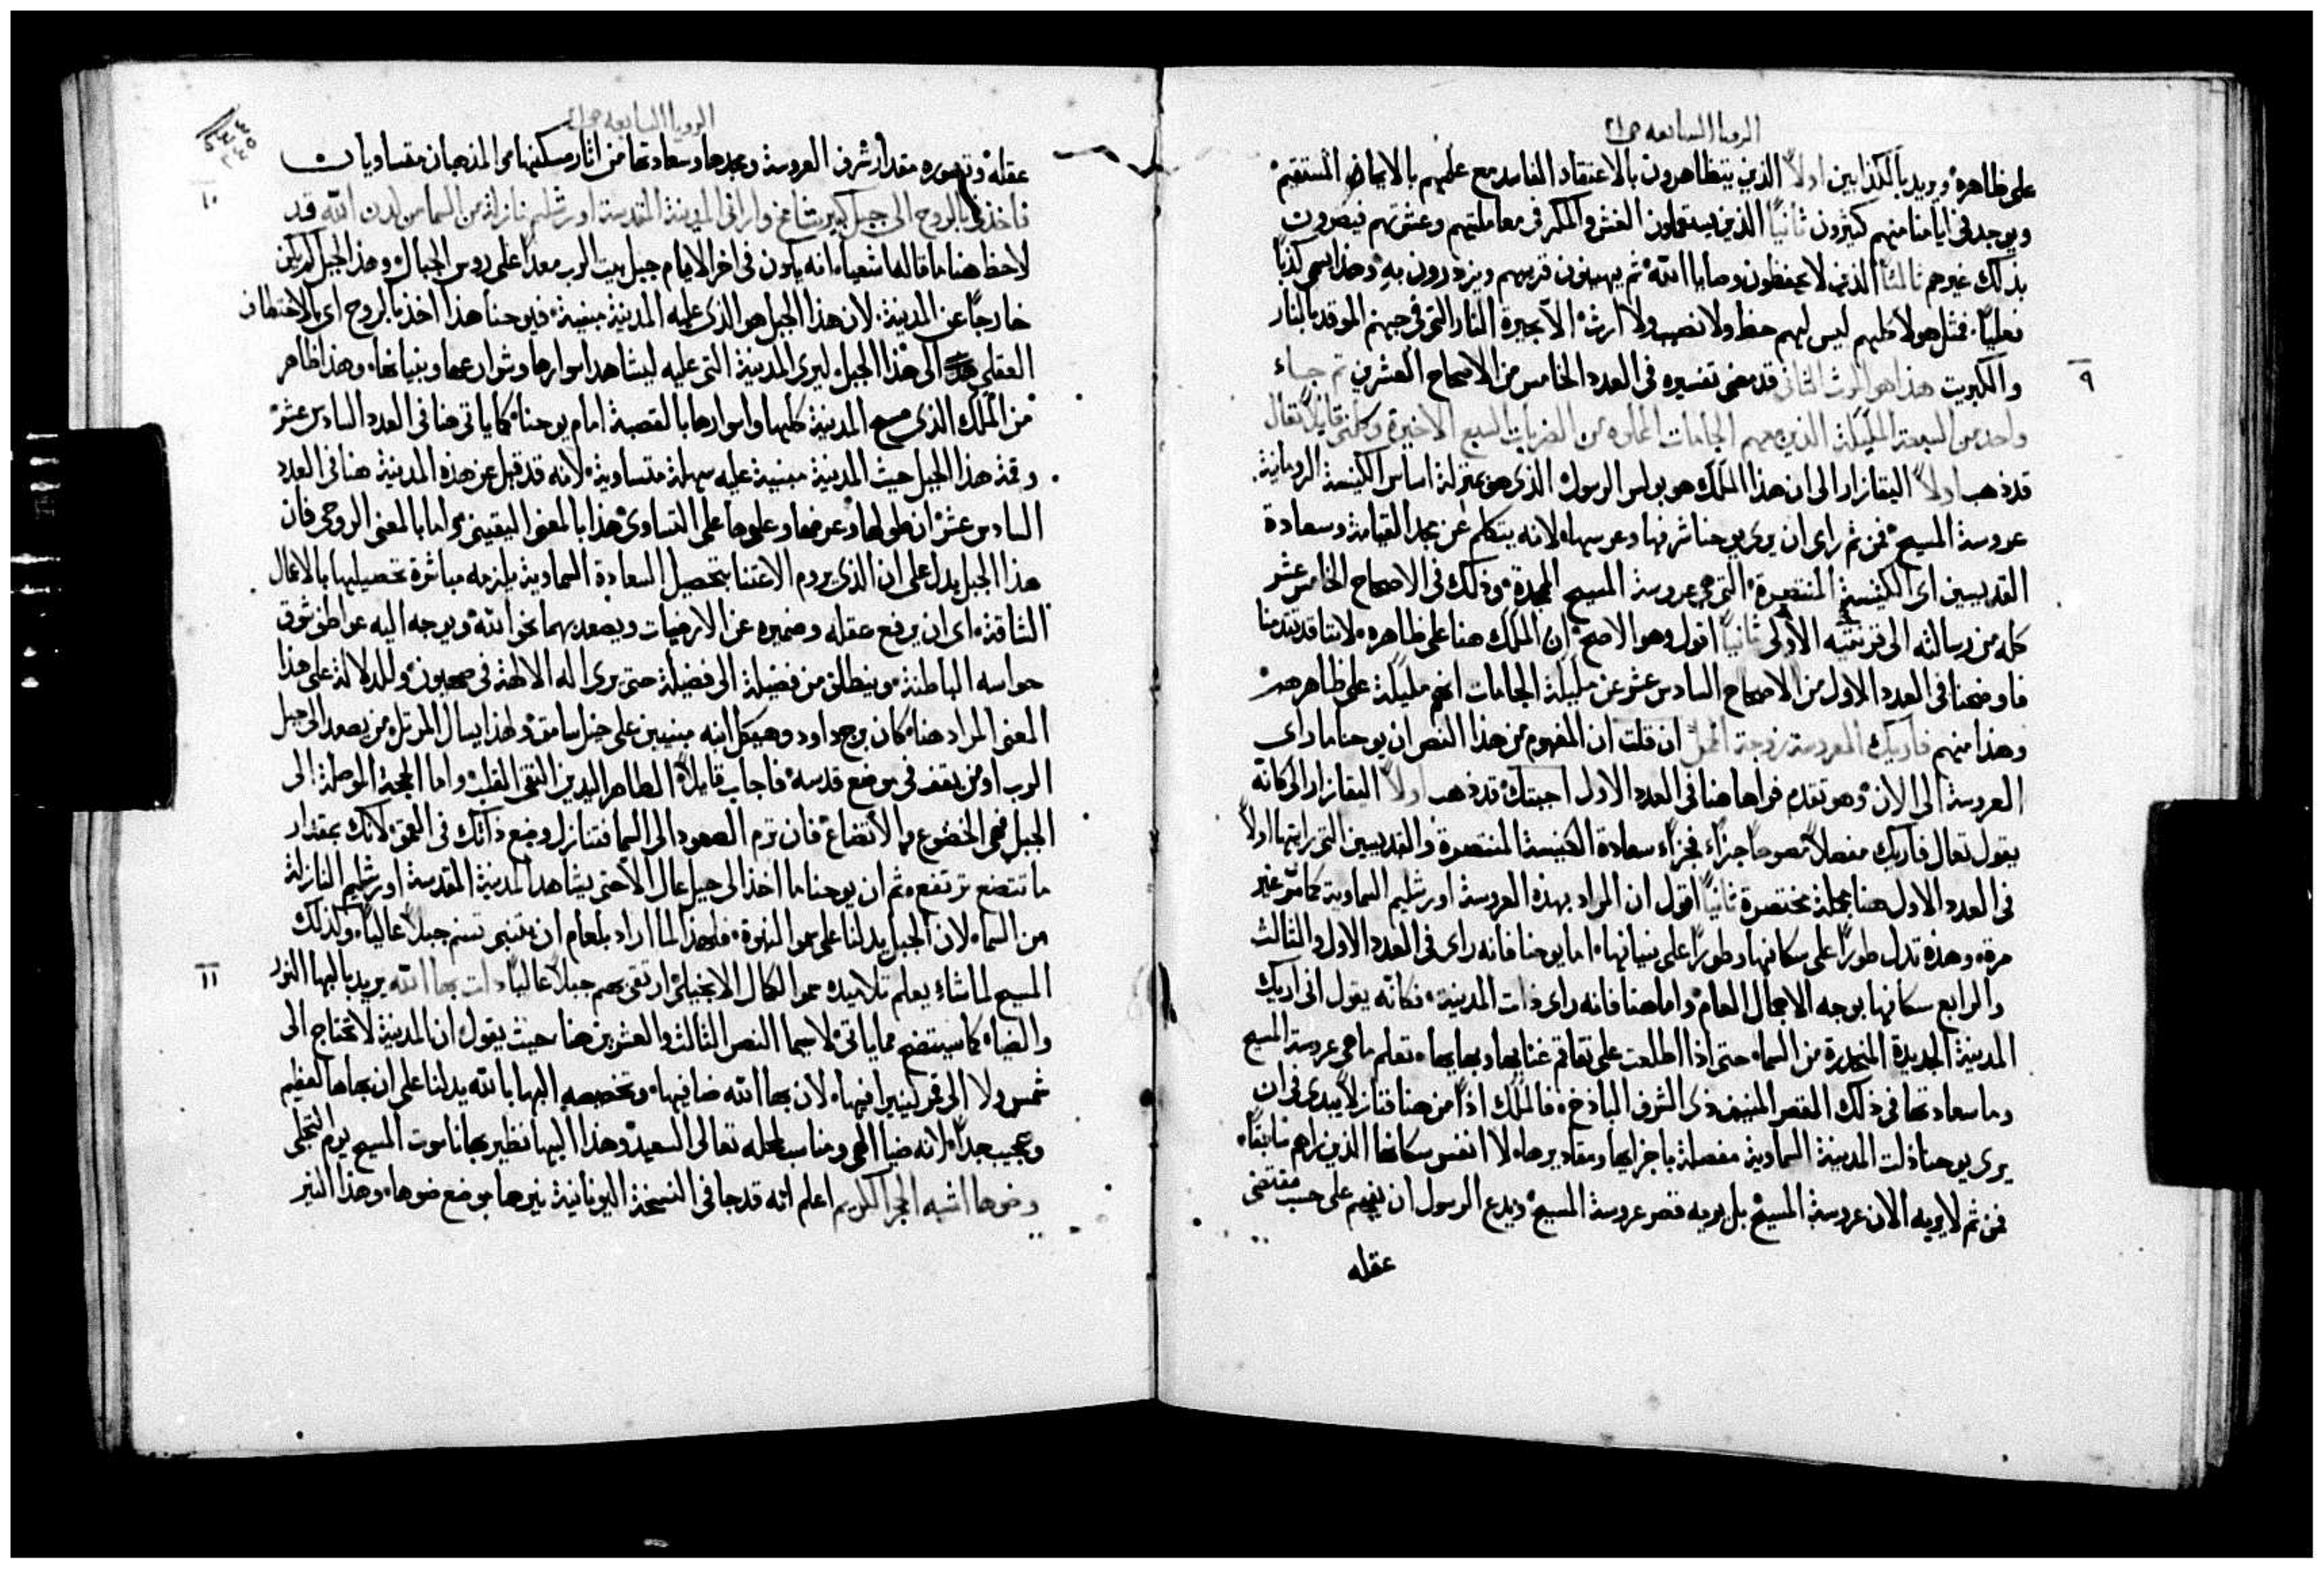 الرويا السابعه ص٢١
على ظاهره ويريد بالكذابين اولاً الذين يتظاهرون بالاعتقاد الفاسد مع علمهم بالايمان المستقيم
ويوجد في ايامنا منهم كثيرون ثانياً الذين يستعملون الغش والمكر في معاملتهم وعشرتهم فيضرون
بذلك غيرهم ثالثاً الذين لا يحفظون وصايا الله ثم يهينون قريبهم ويزدرون به وهذا يسمى كذباً
فعلياً. فمثل هولا كلهم ليس لهم حظ ولا نصيب ولا ارث الا بحيرة النار التي في جهنم الموقده بالنار
والكبريت هذا هو الموت الثاني قد مضى تفسيره في العدد الخامس من الاصحاح العشرين ثم جاء
٩
واحد من السبعة المليكة الذين معهم الجامات المملوه من الضربات السبع الاخيرة وكلمني قايلاً تعال
قد ذهب اولاً اليقازار الى ان هذا الملك هو بولس الرسول الذي هو بمنزلة اساس الكنيسة الرومانية.
عروسة المسيح فمن ثم راى ان يرى يوحنا شرفها وعرسها لانه يتكلم عن مجد القيامة وسعادة
القديسين اى الكنيسة المنتصرة التي هي عروسة المسيح الممجدة وذلك في الاصحاح الخامس عشر
كله من رسالته الى قرنتيه الاولى ثانياً اقول وهو الاصح ان الملك هنا على ظاهره لاننا قد تقدمنا
فاوضحنا في العدد الاول من الاصحاح السادس عشر عن مليكة الجامات انهم مليكة على ظاهرهم
وهذا منهم فاريك العروسة زوجة الحمل ان قلت ان المفهوم من هذا النص ان يوحنا ما راى
العروسة الى الان وهو تقدم فراها هنا في العدد الاول اجبتك قد ذهب اولاً اليقازار الى كانه
يقول تعال فاريك مفصلاً موضحاً جزاء فجزاء سعادة الكنيسة المنتصرة والقديسين التي رايتها اولاً
في العدد الاول هنا بجملة مختصرة ثانياً اقول ان المراد بهذه العروسة اورشليم السماوية كما مر غير
مرة وهذه تدل طوراً على سكانها وطوراً على بنيانها. اما يوحنا فانه راى في العدد الاول والثالث
والرابع سكانها بوجه الاجمال العام واما هنا فانه راى ذات المدينة. فكانه يقول انى اريك
المدينة الجديدة المنحدرة من السما. حتى اذا اطلعت على تفاقم غنايها وبهايها. تعلم ما هي عروسة المسيح
وما سعادتها في ذلك القصر المنيف ذي الشرف الباذخ. فالملك اذاً من هنا فنازلاً يبدى في ان
يرى يوحنا ذلت المدينة السماوية مفصلة باجزايها ومقاديرها. لا انفس سكانها الذين راهم سابقاً.
فمن ثم لا يريه الان عروسة المسيح بل يريه قصر عروسة المسيح ويدع الرسول ان يفهم على حسب مقتضى
عقله
الرويا السابعه ص٢١
عقله وتصوره مقدار شرف العروسة ومجدها وسعادتها من اثار مسكنها والمذهبان متساويان
فاخذني بالروح الى جبل كبير شامخ وارانى المدينة المقدسة اورشليم نازلة من السما من لدن الله قد
١٠
لاحظ هنا ما قاله اشعيا. انه يكون في اخر الايام جبل بيت الرب معداً على روس الجبال وهذا الجبل لم يكن
خارجاً عن المدينة. لان هذا الجبل هو الذي عليه المدينة مبنية. فيوحنا هذا اخذ بالروح اى بالاختطاف
العقلي الى هذا الجبل. ليرى المدينة التي عليه ليشاهد اسوارها وشوارعها وبنيانها. وهذا ظاهر
من الملك الذي مسح المدينة كلها واسوارها بالقصبة امام يوحنا كما ياتي هنا في العدد السادس عشر
وقمة هذا الجبل حيث المدينة مبنية عليه سهلة متساوية. لانه قد قيل عن هذه المدينة هنا في العدد
السادس عشر ان طولها وعرضها وعلوها على التساوى هذا بالمعنى اليقيني واما بالمعنى الروحي فان
هذا الجبل يدل على ان الذي يروم الاعتنا بتحصيل السعادة السماوية يلزمه مباشرة تحصيلها بالاعمال
الشاقة. اى ان يرفع عقله وضميره عن الارضيات ويصعد بهما نحو الله ويوجه اليه عواطف شوق
حواسه الباطنة. وينطلق من فضيلة الى فضيلة حتى يرى اله الالهة في صهيون وللدلالة على هذا
المعنى المراد هنا كان برج داود وهيكل ابنه مبنيين على جبل سامق ولهذا يسال المرتل من يصعد الى جبل
الرب او من يقف في موضع قدسه فاجاب قايلاً الطاهر اليدين النقي القلب واما المحجة الموصلة الى
الجبل فهي الخضوع والاتضاع فان ترم الصعود الى السما فتنازل وضع ذاتك في العمق لانك بمقدار
ما تتضع ترتفع. ثم ان يوحنا ما اخذ الى جبل عال الا حتى يشاهد المدينة المقدسة اورشليم النازلة
من السما. لان الجبل يدلنا على سمو النبوة. فلهذا لما اراد بلعام ان يتنبى تسنم جبلاً عالياً. وكذلك
المسيح لما شاء يعلم تلاميذه سمو الكمال الانجيلي ارتقى بهم جبلاً عالياً ذات بها الله يريد بالبها النور
١١
والضياء كما سيتضح مما ياتي لاسيما النص الثالث والعشرين هنا. حيث يقول ان المدينة لا تحتاج الى
شمس ولا الى قمر لينيرا فيها. لان بها الله ضا فيها. وتخصيصه البها بالله يدلنا على ان بهاها العظيم
وعجيب جداً. لانه ضيا الهي ومناسب لمحله تعالى السعيد وهذا البها نظير بها ناسوت المسيح يوم التجلي
وضوها اشبه الحجر الكريم اعلم انه قد جا في النسخة اليونانية نيرها موضع ضوها. وهذا النير